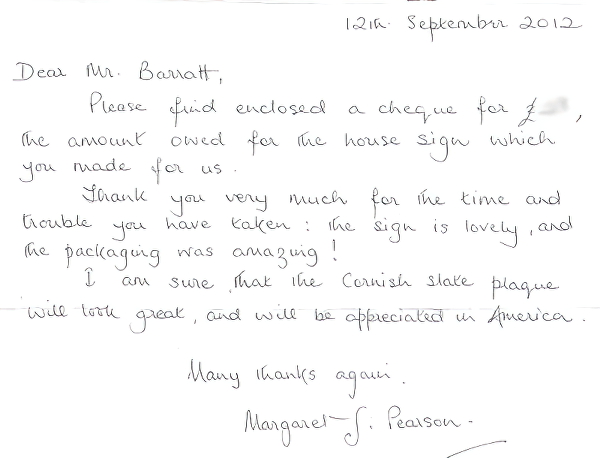 12th September 2012
Dear Mr. Barratt,
Please find enclosed a cheque for £ ,
the amount owed for the house sign which
you made for us.
Thank you very much for the time and
trouble you have taken : the sign is lovely, and
the packaging was amazing!
I am sure that the Cornish slate plaque
will look great, and will be appreciated in America.
Many thanks again.
Margaret J. Pearson.